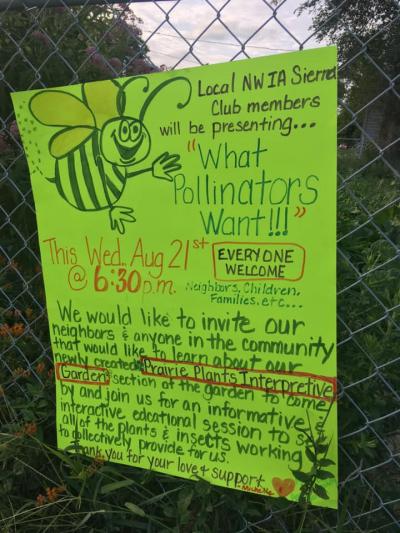 Local NWIA Sierra
Club members
will be presenting...
"What
Pollinators
Want!!!"
This Wed. Aug 21st
@ 6:30p.m.
EVERYONE
WELCOME
Neighbors, Children,
Families, etc...
We would like to invite our
neighbors & anyone in the community
that would like to learn about our
newly created Prairie Plants Interpretive
Garden section of the garden to come
by and join us for an informative
interactive edcational session to see
all of the plants & insects working
to collectively provide for us.
Thank you for your love & support